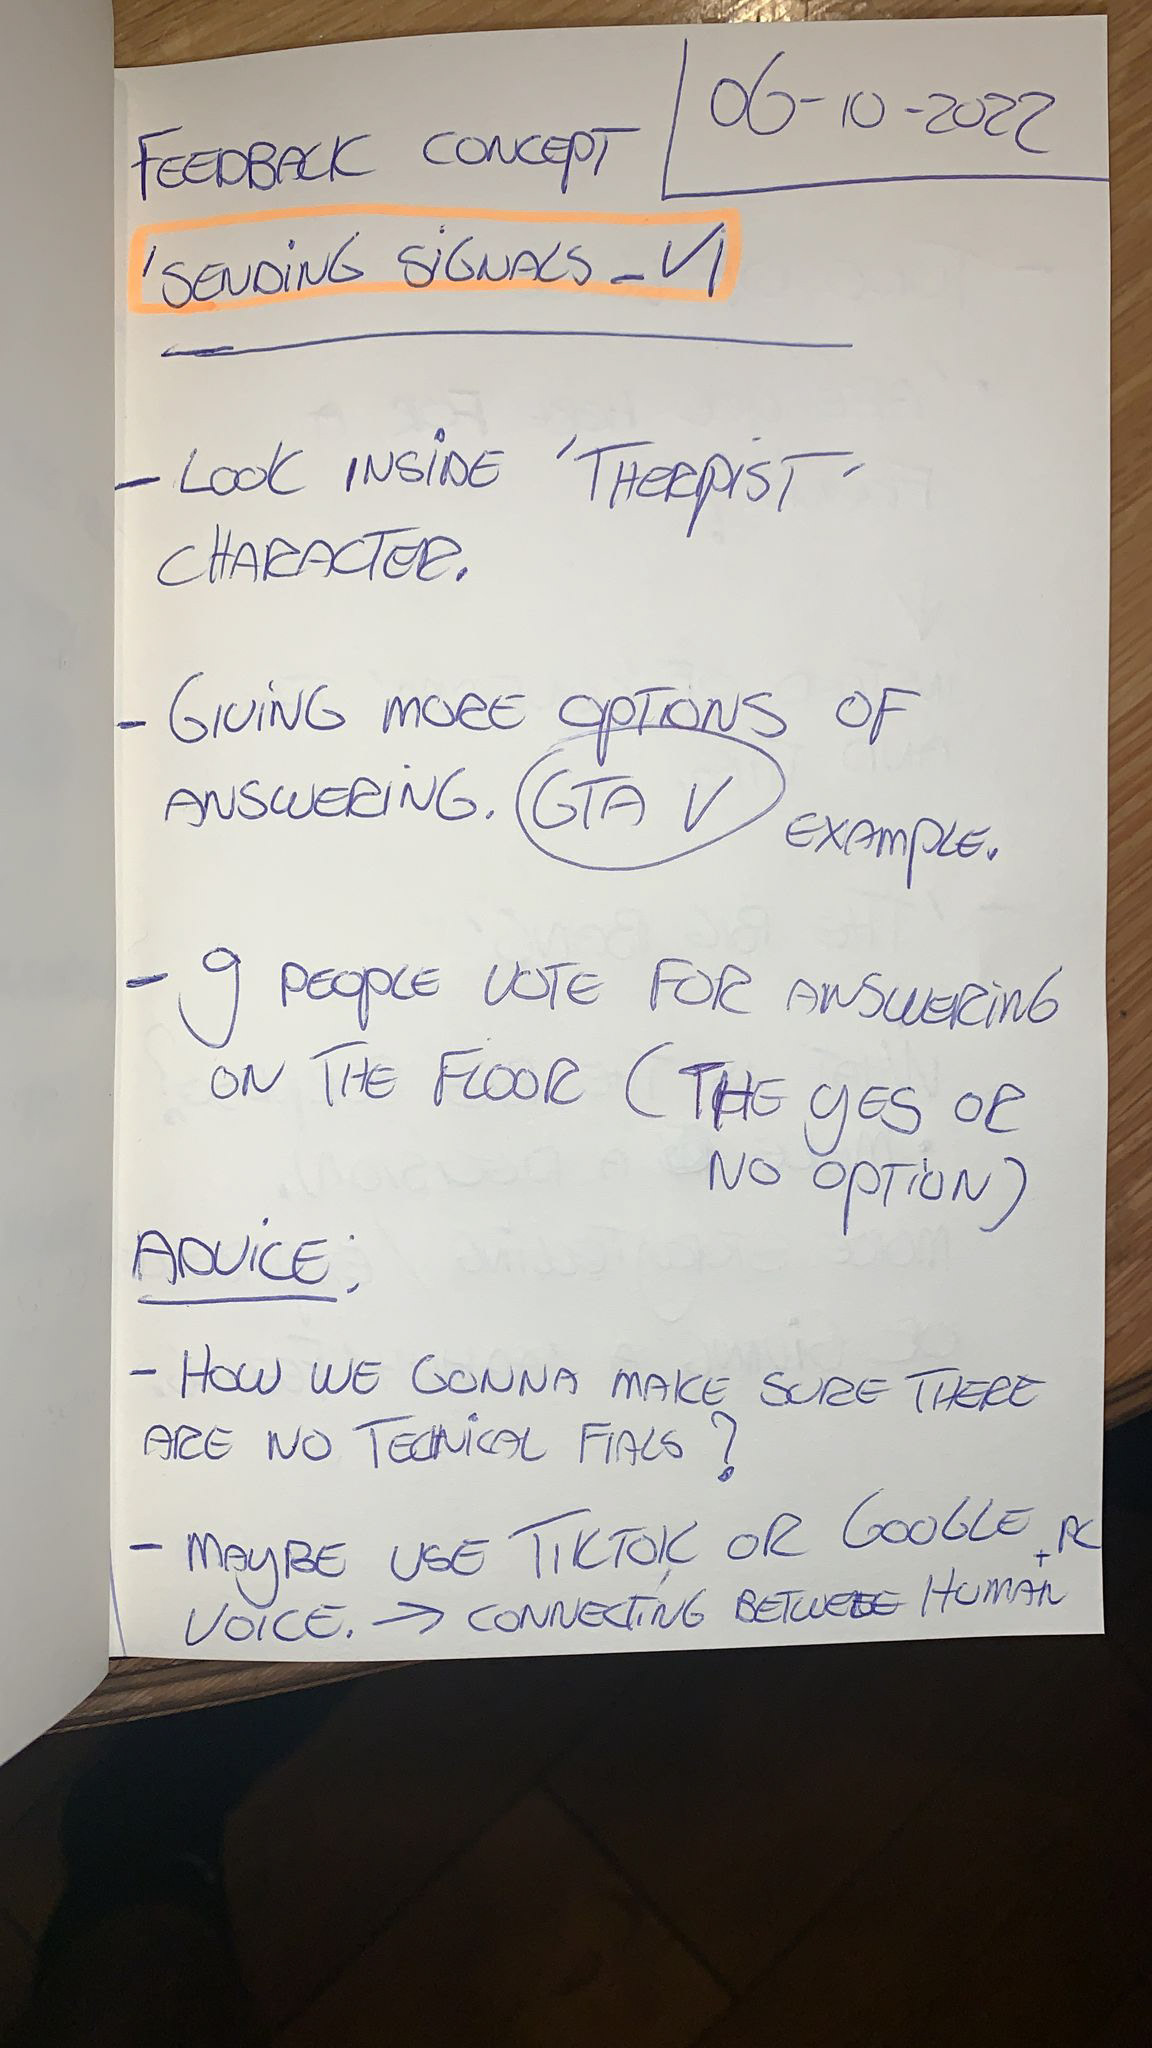 06-10-2022
FEEDBACK CONCEPT
'SENDING SIGNALS_V1
- LOOK INSIDE 'THERPIST'
CHARACTER.
- GIVING MORE OPTIONS OF
ANSWERING. GTA V EXAMPLE.
- 9 PEOPLE VOTE FOR ANSWERING
ON THE FLOOR (THE YES OR
NO OPTION)
ADVICE:
- HOW WE GONNA MAKE SURE THERE
ARE NO TECHNICAL FIALS?
- MAYBE USE TIKTOK OR GOOGLE
VOICE. → CONNECTING BETWEEE HUMAN
+ PC